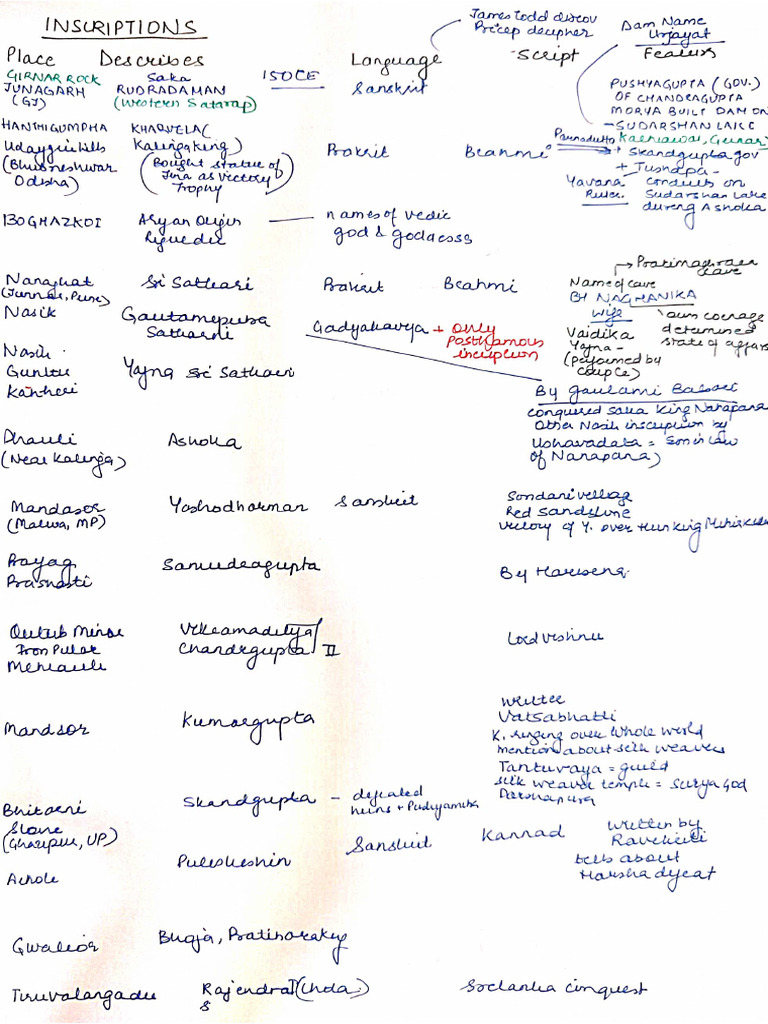 INSCRIPTIONS
James Todd discov
Pricep decipher
Dam Name
Urjayat
Place Describes Language Script Features
GIRNAR ROCK
JUNAGARH
(GJ)
Saka
RUDRADAMAN
(Western Satarap)
150CE
Sanskrit
PUSHYAGUPTA (GOV.)
OF CHANDRAGUPTA
MORYA BUILT DAM ON
SUDARSHAN LAKE
HANTHIGUMPHA
Udaygiri hills
(Bhubneshwar
Odisha)
KHARVELA(
Kalinga king)
(Bought statue of
Jina as victory
Trophy)
Prakrit
Brahmi
Skandgupta gov
+ Tushapa -
Yavana
Ruler.
conduits on
Sudarshan Lake
during Ashoka
BOGHAZKOI
Aryan Origin
Rigvedic
names of vedic
god & goddcoss
Nanaghat
(Junnar, Pune)
Sri Sathari
Prakrit
Brahmi
Name of cave
BY NAGHANIKA
wife
Vaidika
Yajna -
(performed by
couple)
own courage
determined
state of affairs
Nasik
Gautamipura
Satkarni
Gadyakavya + only
Posthamous
incription
Nasik
Guntur
Kanheri
Yajna Sri Satkari
By gautami Balsari
conquered saka king Nahapana
Other Nasik inscription by
Ushavadata = Son in law
of Nanapana)
Dhauli
(Near Kalinga)
Ashoka
Mandasor
(Malwa, MP)
Yoshodharman
Sanskrit
Sondani village
Red Sandstone
victory of Y. over Hun king Mihirkula
Prayag
Prashasti
Samudragupta
By Harisena
Qutub Minar
Iron Pillar
Mehrauli
Vikramaditya/
Chandrgupta II
Lord vishnu
Mandsor
Kumargupta
writter
Vatsabhatti
K. riging over whole world
mention about silk weavers
Tantuvaya = guild
silk weaver temple = Surya God
Dashapura
Bhitari
Stone
(Ghazipur, UP)
Skandgupta - defeated
huns + Pushyamitra
Ahole
Pulekeshin
Sanskrit
Kannad
Written by
Ravikirti
tells about
Harsha dfeat
Gwalior
Bhoja, Pratiharakey
Tiruvalangadu
Rajendra I (Chola)
S
Srelanka cinquest